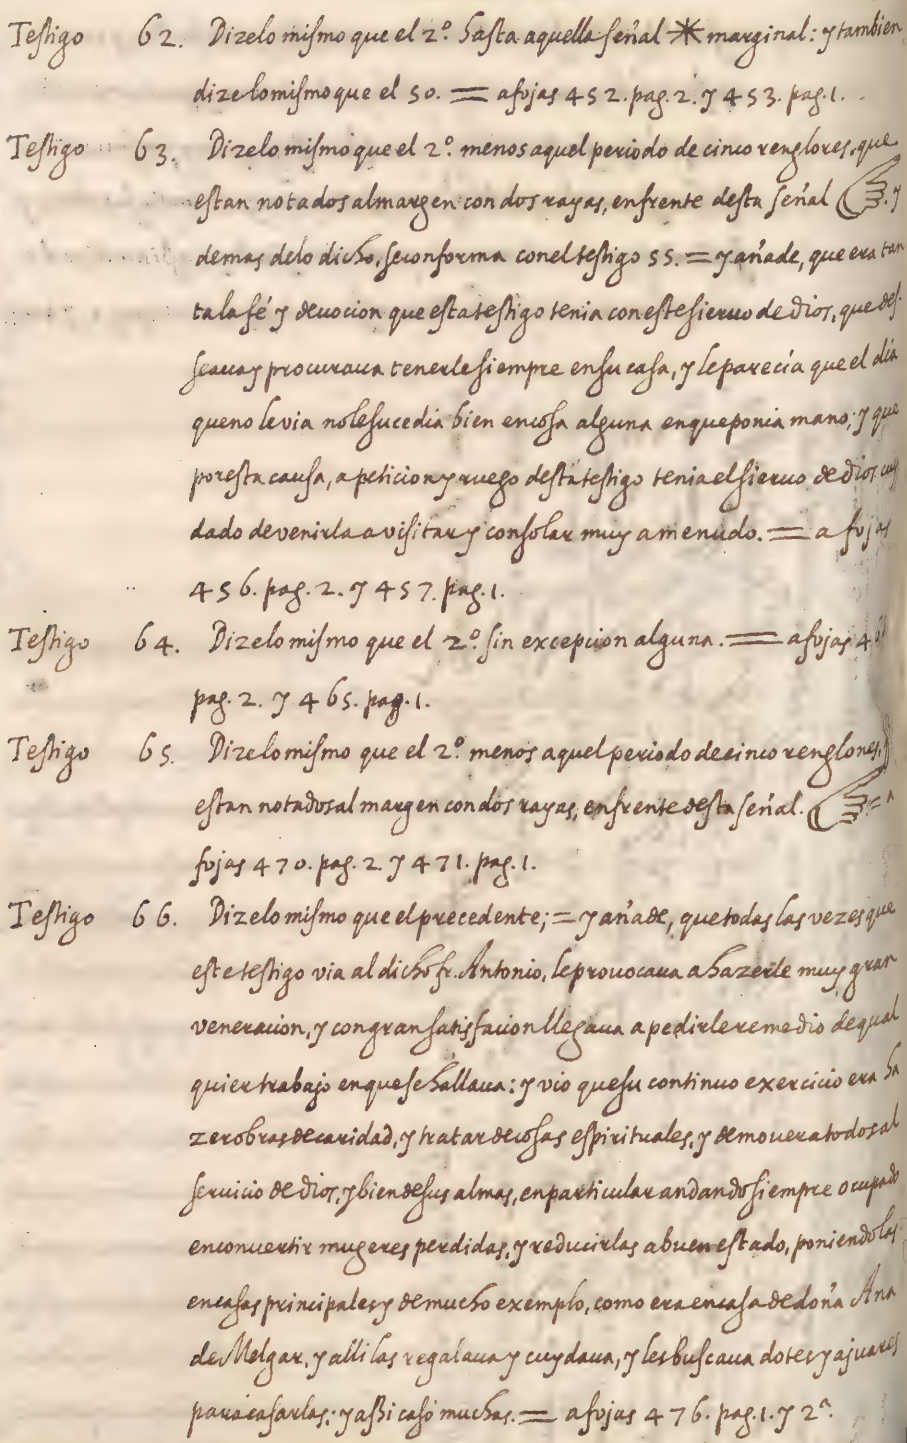 Testigo 62. Dize lo mismo que el 2º. hasta aquella señal * marginal: y tambien
dize lo mismo que el 50. = a fojas 452. pag. 2. y 453. pag. 1.
Testigo 63. Dize lo mismo que el 2º. menos aquel periodo de cinco renglores, que
estan notados al margen con dos rayas, enfrente desta señal ☞. y
demas de lo dicho, se conforma con el testigo 55. = y añade, que era tan
ta la fé y deuocion que esta testigo tenia con este sieruo de Dios, que des
seaua y procuraua tenerle siempre en su casa, y le parecía que el dia
que no le via no le sucedia bien en cosa alguna en que ponia mano; y que
por esta causa, a peticion y ruego desta testigo tenia el sieruo de Dios cuy
dado de venirla a visitar y consolar muy a menudo. = a fojas
456. pag. 2. y 457. pag. 1.
Testigo 64. Dize lo mismo que el 2º. sin excepcion alguna. = a fojas
pag. 2. y 465. pag. 1.
Testigo 65. Dize lo mismo que el 2º. menos aquel periodo de cinco renglones,
estan notados al margen con dos rayas, enfrente desta señal. ☞ = a
fojas 470. pag. 2. y 471. pag. 1.
Testigo 66. Dize lo mismo que el precedente; = y añade, que todas las vezes que
este testigo via al dicho fr. Antonio, le prouocaua a hazerle muy gran
veneracion, y con gran satisfacion llegaua a pedirle remedio de qual
quier trabajo en que se hallaua: y vio que su continuo exercicio era ha
zer obras de caridad, y tratar de cosas espirituales, y de mouer a todos al
seruicio de Dios, y bien de sus almas, en particular andando siempre ocupado
en conuertir mugeres perdidas, y reducirlas a buen estado, poniendolas
en casas principales y de mucho exemplo, como era en casa de doña Ana
de Melgar, y alli las regalaua y cuydaua, y les buscaua dotes y ajuares
para casarlas: y assi casó muchas. = a fojas 476. pag. 1. y 2ª.